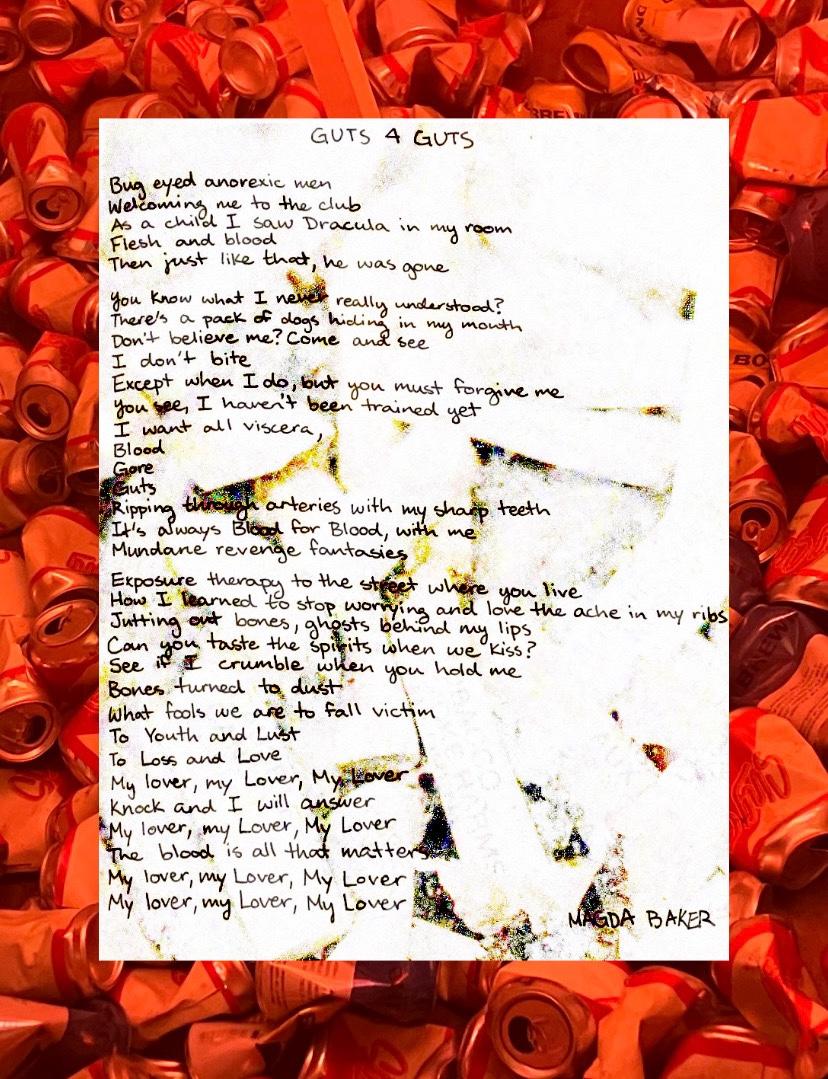 GUTS 4 GUTS
Bug eyed anorexic men
Welcoming me to the club
As a child I saw Dracula in my room
Flesh and blood
Then just like that, he was gone
You know what I never really understood?
There's a pack of dogs hiding in my mouth
Don't believe me? Come and see
I don't bite
Except when I do, but you must forgive me
You see, I haven't been trained yet
I want all viscera,
Blood
Gore
Guts
Ripping through arteries with my sharp teeth
It's always Blood for Blood, with me
Mundane revenge fantasies
Exposure therapy to the street where you live
How I learned to stop worrying and love the ache in my ribs
Jutting out bones, ghosts behind my lips
Can you taste the spirits when we kiss?
See if I crumble when you hold me
Bones turned to dust
What fools we are to fall victim
To Youth and Lust
To Loss and Love
My lover, my Lover, My Lover
Knock and I will answer
My lover, my Lover, My Lover
The blood is all that matters
My lover, my Lover, My Lover
My lover, my Lover, My Lover
MAGDA BAKER